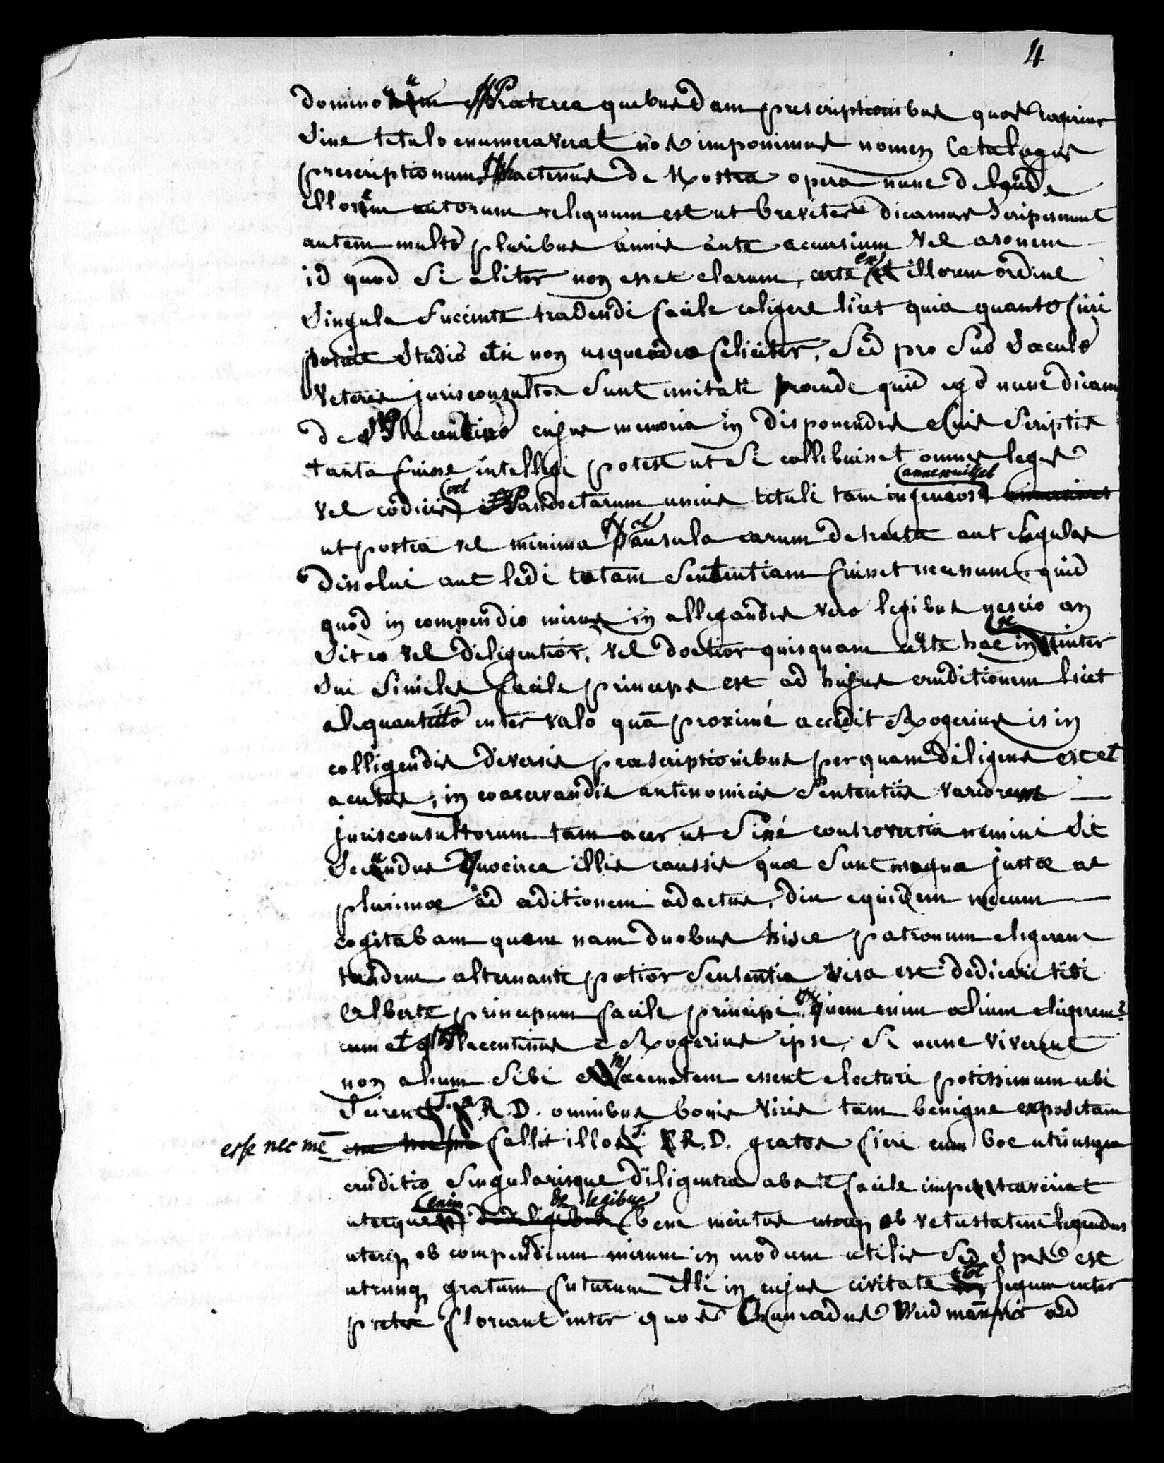 4
dominorum Præterea quibusdam prescriptionibus quas rogerius
sine titulo enumeraverat nos imponimus nomen Catalogus
prescriptionum, hactenus de nostra opera nunc de
illorum autorum reliquum est ut breviter dicamus scripserunt
autem multo pluribus annis ante accursium vel azonem
id quod si aliter non esset clarum, certe ex illorum ordine
singula succinte tradendi facile coligere licet quia quanto
studio non usqueadeo feliciter, sed pro suo sæculo
veteres jurisconsultos sunt imitati proinde quid ego nunc dicam
de Placentino cujus memoria in disponendis scriptis
tanta fuisse intellegi potest ut si collibuisset omnes leges
vel codicis vel Pandectarum unius tituli tam ingeniose annexuisset
ut postea vel minima earum detracta aut singulas
dissolui aut ledi totam sententiam fuisset necessum, quid
quod in compendio mirus in allegandis vero legibus nescio an
sit eo vel diligentior, vel doctior quisquam certe hac in re inter
sui similes facile princeps est ad hujus eruditionem licet
aliquantulo inter valo quam proximé accedit Rogerius is in
colligendis diversis præscriptionibus perquam diligens est et
acutus, in coacervandis antinomiis sententiis variorum
jurisconsultorum tam acer ut siné controversia nemini sit
secundus Quocirca illis caussis quæ sunt magnæ justæ ac
plurimæ ad aditionem adactus, diu equidem mecum
cogitabam quem nam duobus hisce patronum eligerem
tandem alternante potior sententia visa est dedicari tibi
Alberte principum facile principi, quem enim alium eligerem?
cum et Placentinus & Rogerius ipse, si nunc viverent
non alium sibi mæcenatem essent electuri potissimum ubi
scirent T. R. D. omnibus bonis viris tam benigne expositam
esse nec me fallit illos T. R. D. gratos fieri cum hoc utriusque
eruditio singularisque diligentia abs te facile impetraverint
uterque enim de legibus bene meritus uterque ob vetustatem legendus
uterque ob compendium mirum in modum utilis sed spes est
utrunque gratum futurum illi in cujus civitate tot legum inter
pretes floreant inter quos Chunradus ad